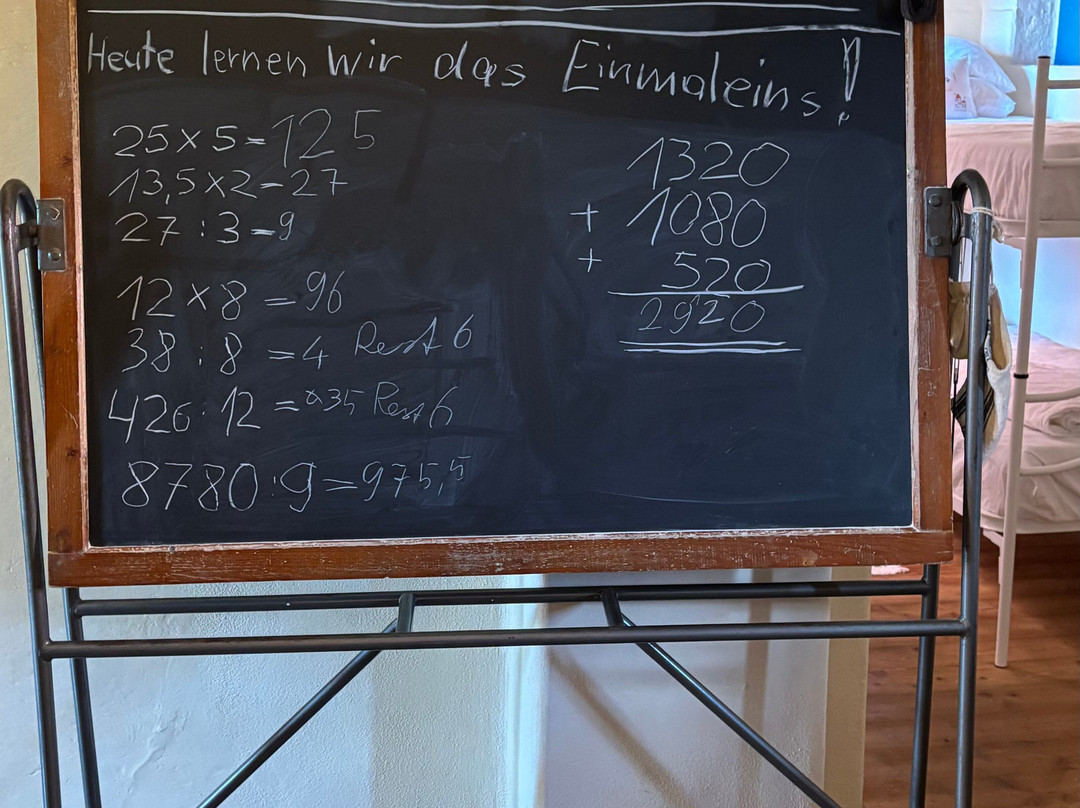 Heute lernen wir das Einmaleins!
25 x 5 = 125
13,5 x 2 = 27
27 : 3 = 9
12 x 8 = 96
38 : 8 = 4 Rest 6
426 : 12 = 35 Rest 6
8780 : 9 = 975,5
1320
+ 1080
+ 520
2920